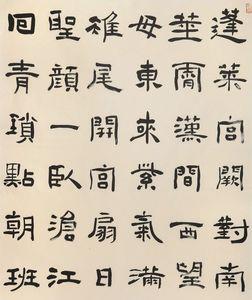 蓬萊宮闕對南
莖霄漢間西望
母東來紫氣滿
雉尾開宮扇日
聖顏一臥滄江
回青瑣點朝班